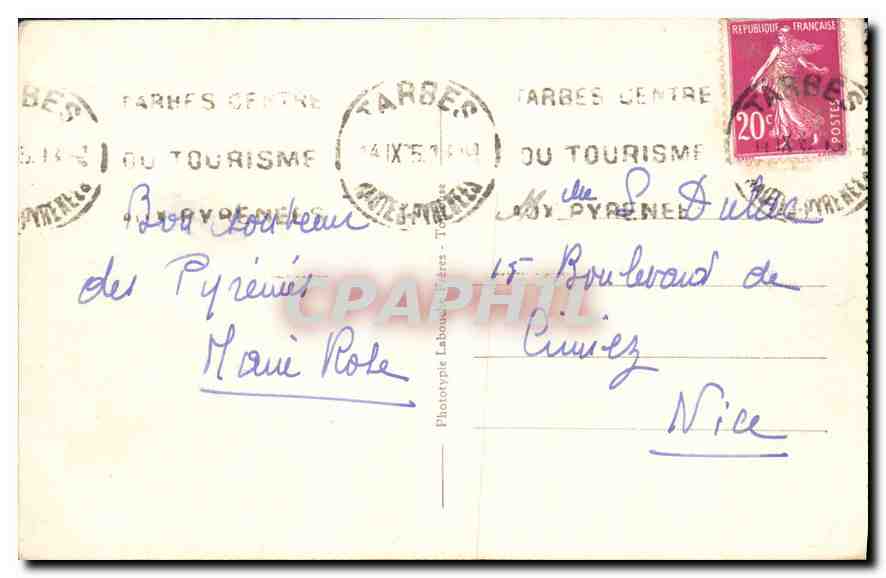 REPUBLIQUE FRANÇAISE
20c
POSTES
TARBES
HAUTES-PYRENEES
TARBES CENTRE
DU TOURISME
AUX PYRENEES
TARBES
14 IX
HAUTES-PYRENEES
TARBES CENTRE
DU TOURISME
AUX PYRENEE
TARBES
HAUTES-PYRENEES
Bon souvenir
des Pyrénées
Marie Rose
Phototypie Labouche Frères -
Mme S Dulac
15 Boulevard de
Cimiez
Nice
CPAPHIL